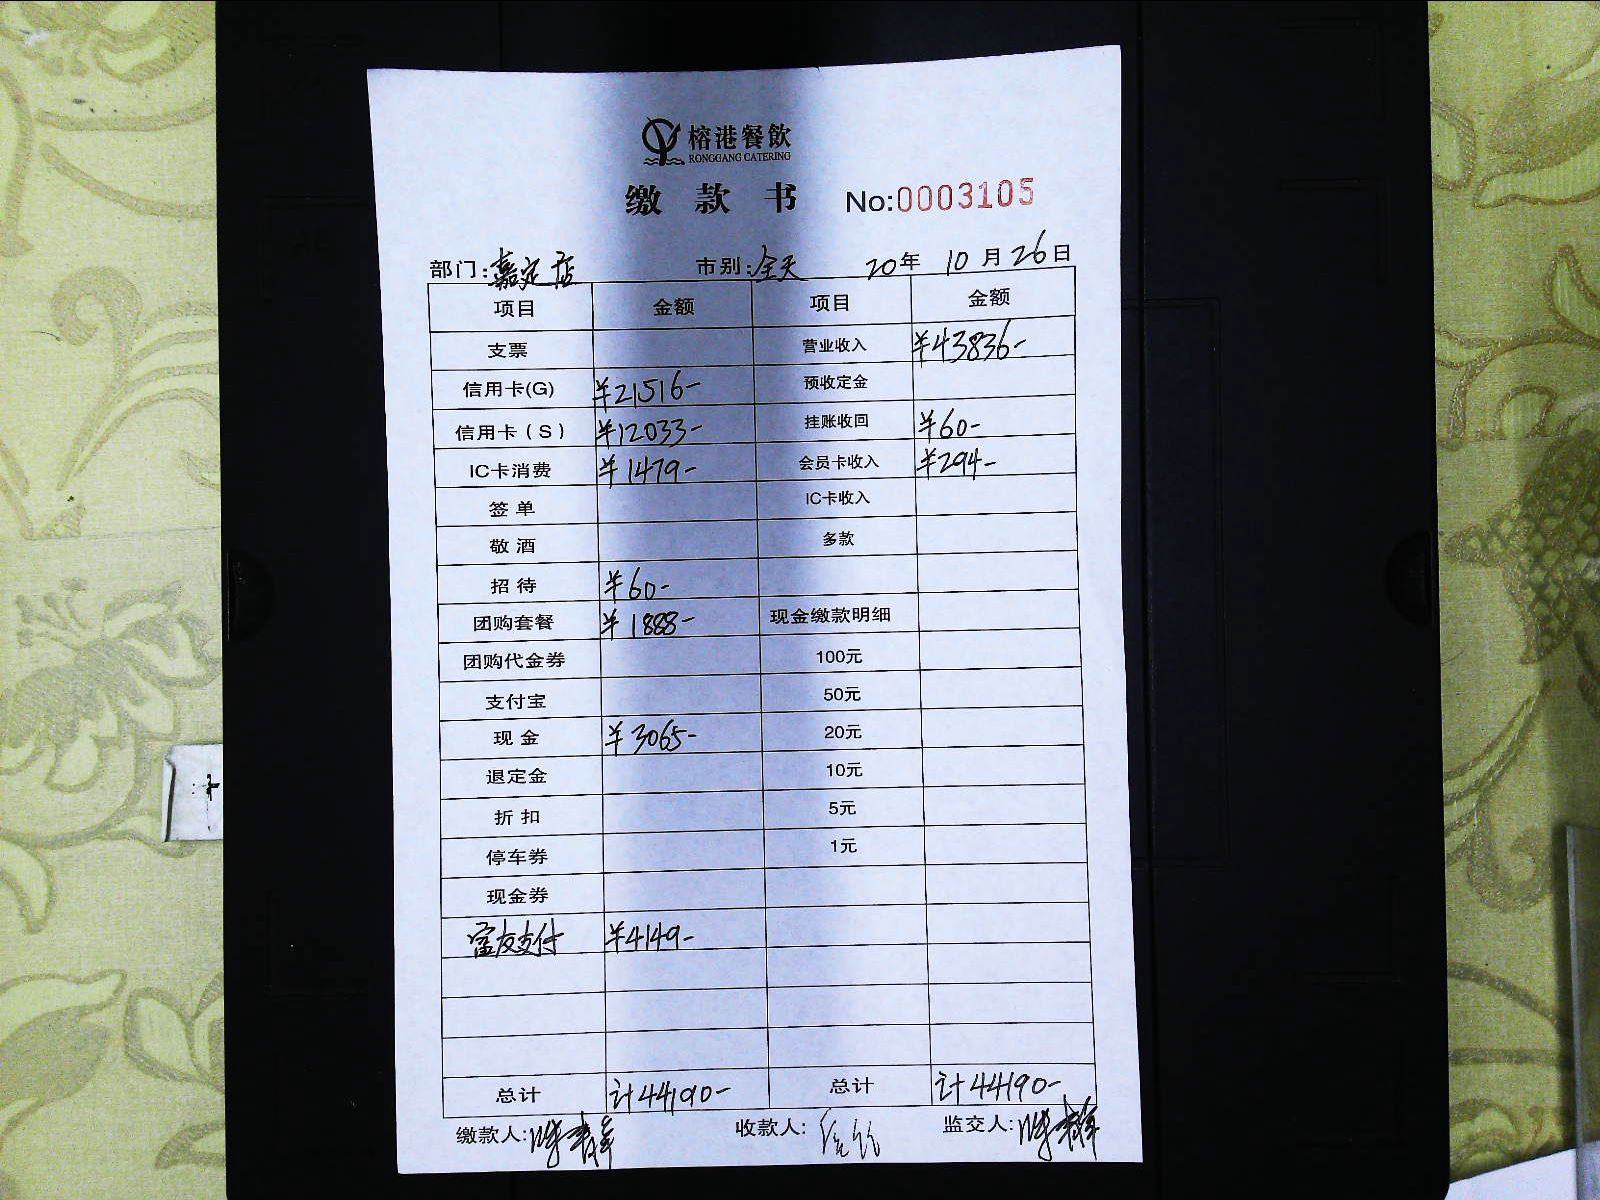 榕港餐飲
RONGGANG CATERING
缴款书 No:0003105
部门:嘉定店 市别:全天 20年10月26日
项目 金额 项目 金额
支票 营业收入 ¥43836-
信用卡(G) ¥21516- 预收定金
信用卡(S) ¥12033- 挂账收回 ¥60-
IC卡消费 ¥1479- 会员卡收入 ¥294-
签单 IC卡收入
敬酒 多款
招待 ¥60-
团购套餐 ¥1888- 现金缴款明细
团购代金券 100元
支付宝 50元
现金 ¥3065- 20元
退定金 10元
折扣 5元
停车券 1元
现金券
富友支付 ¥4149-
总计 计44190- 总计 计44190-
缴款人: 收款人: 监交人: